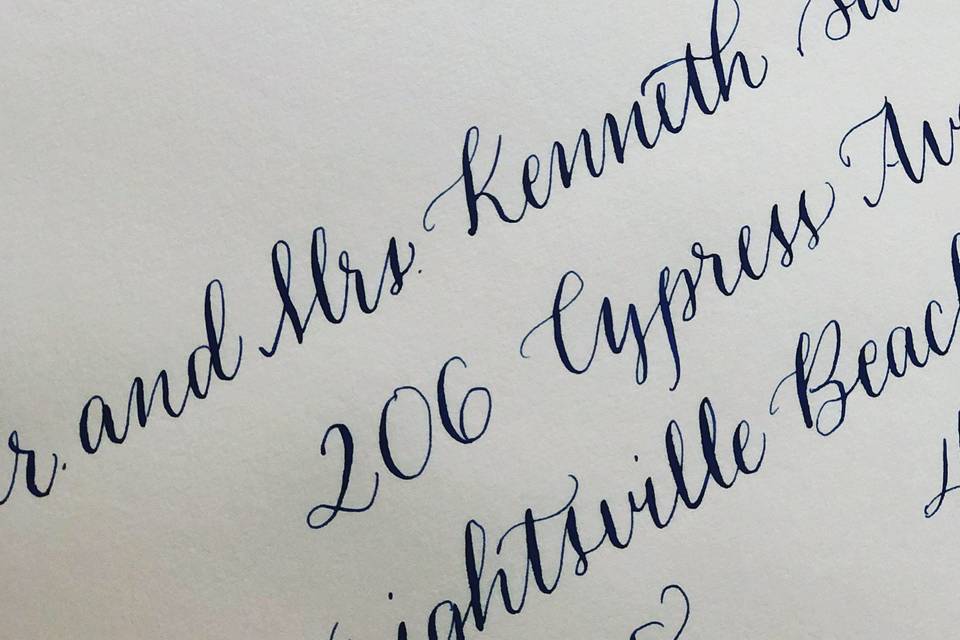 r. and Mrs. Kenneth
206 Cypress Av
rightsville Beach